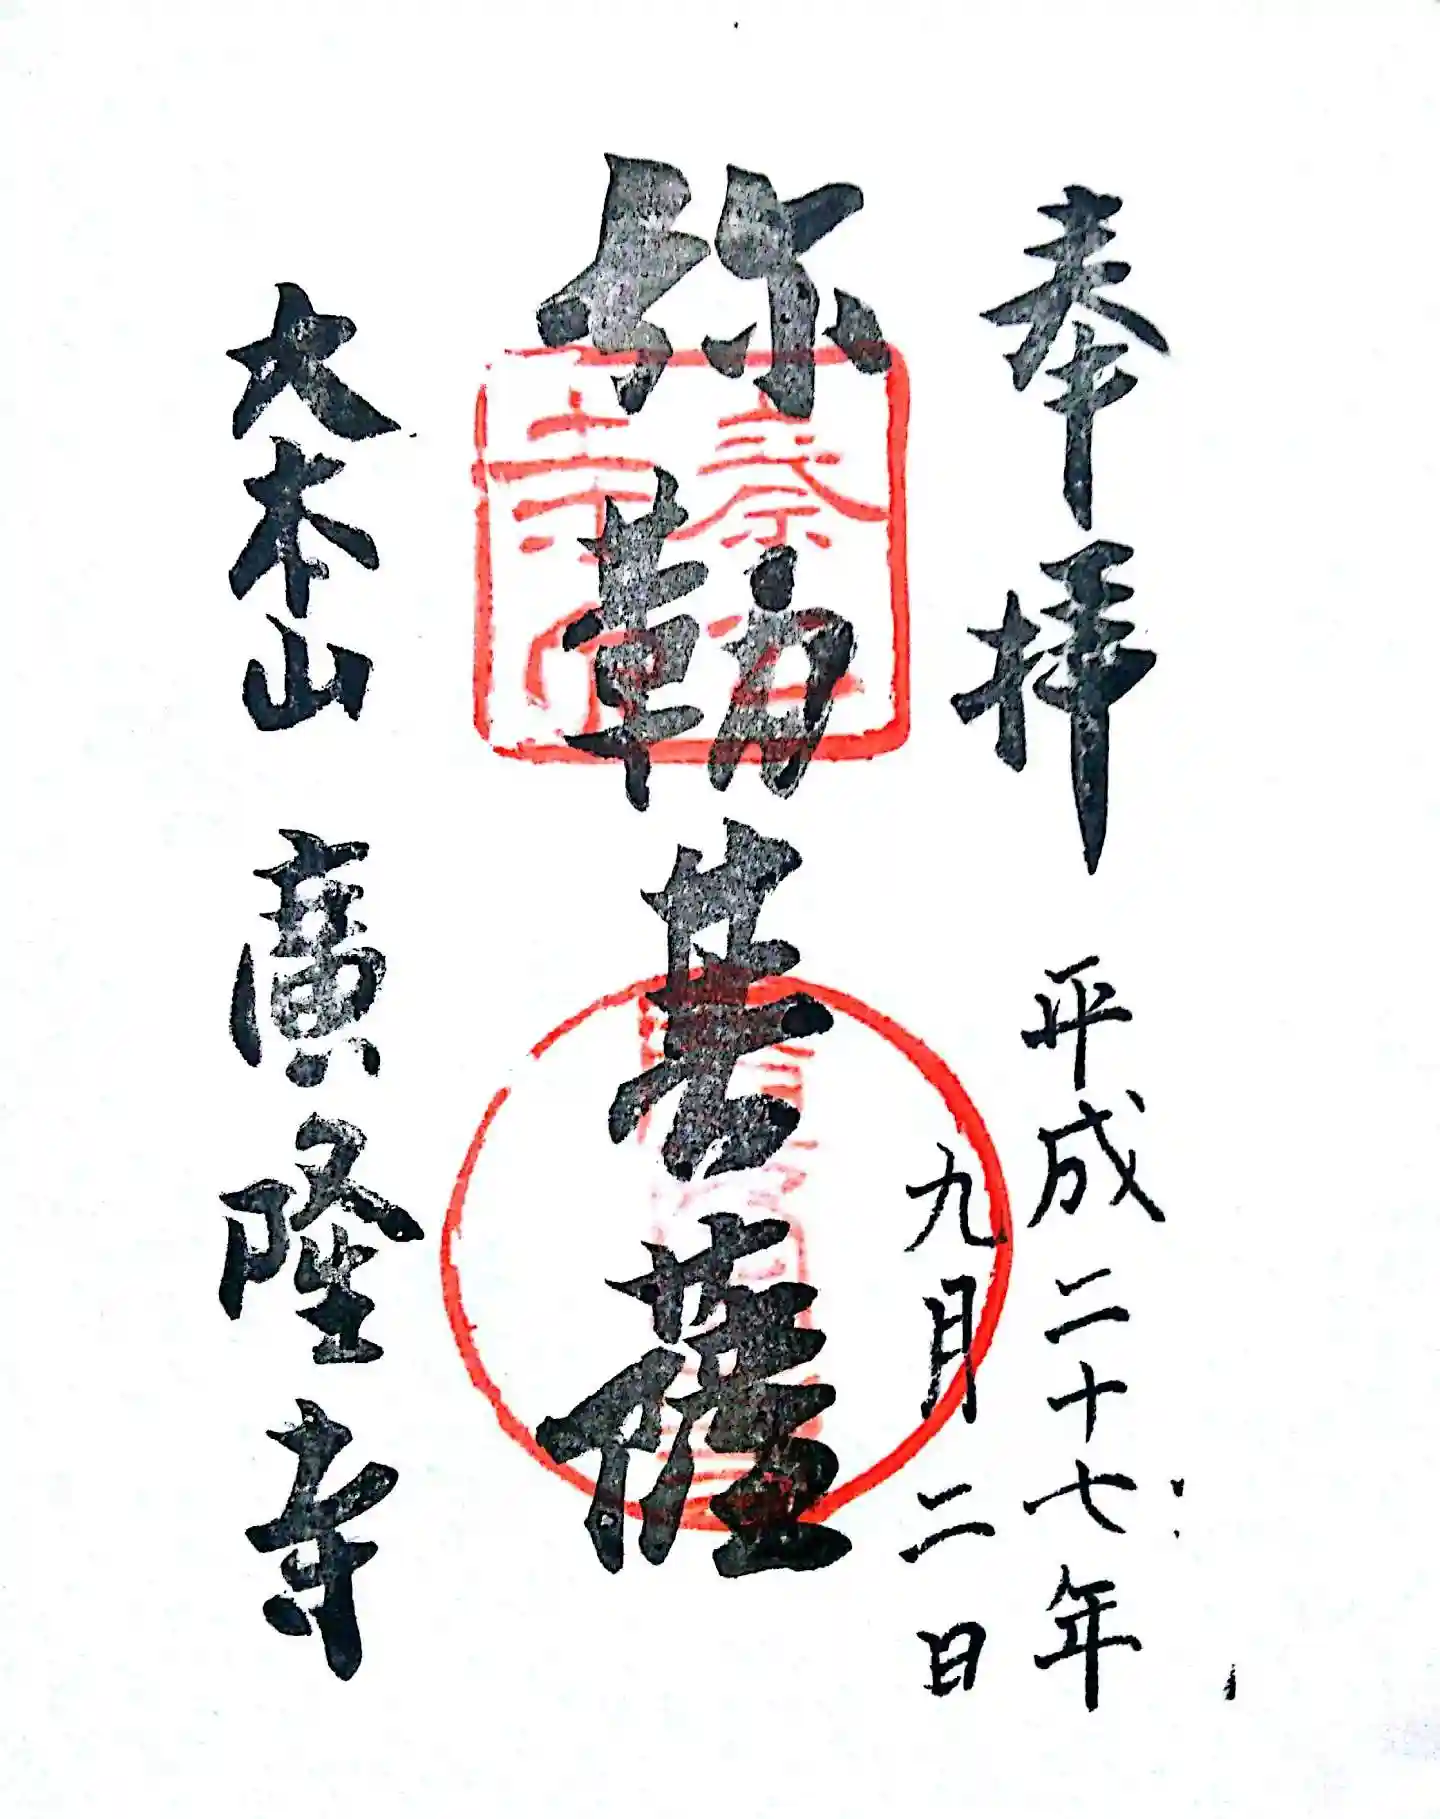 奉拝 平成二十七年
九月二日
弥勒菩薩
大本山 廣隆寺